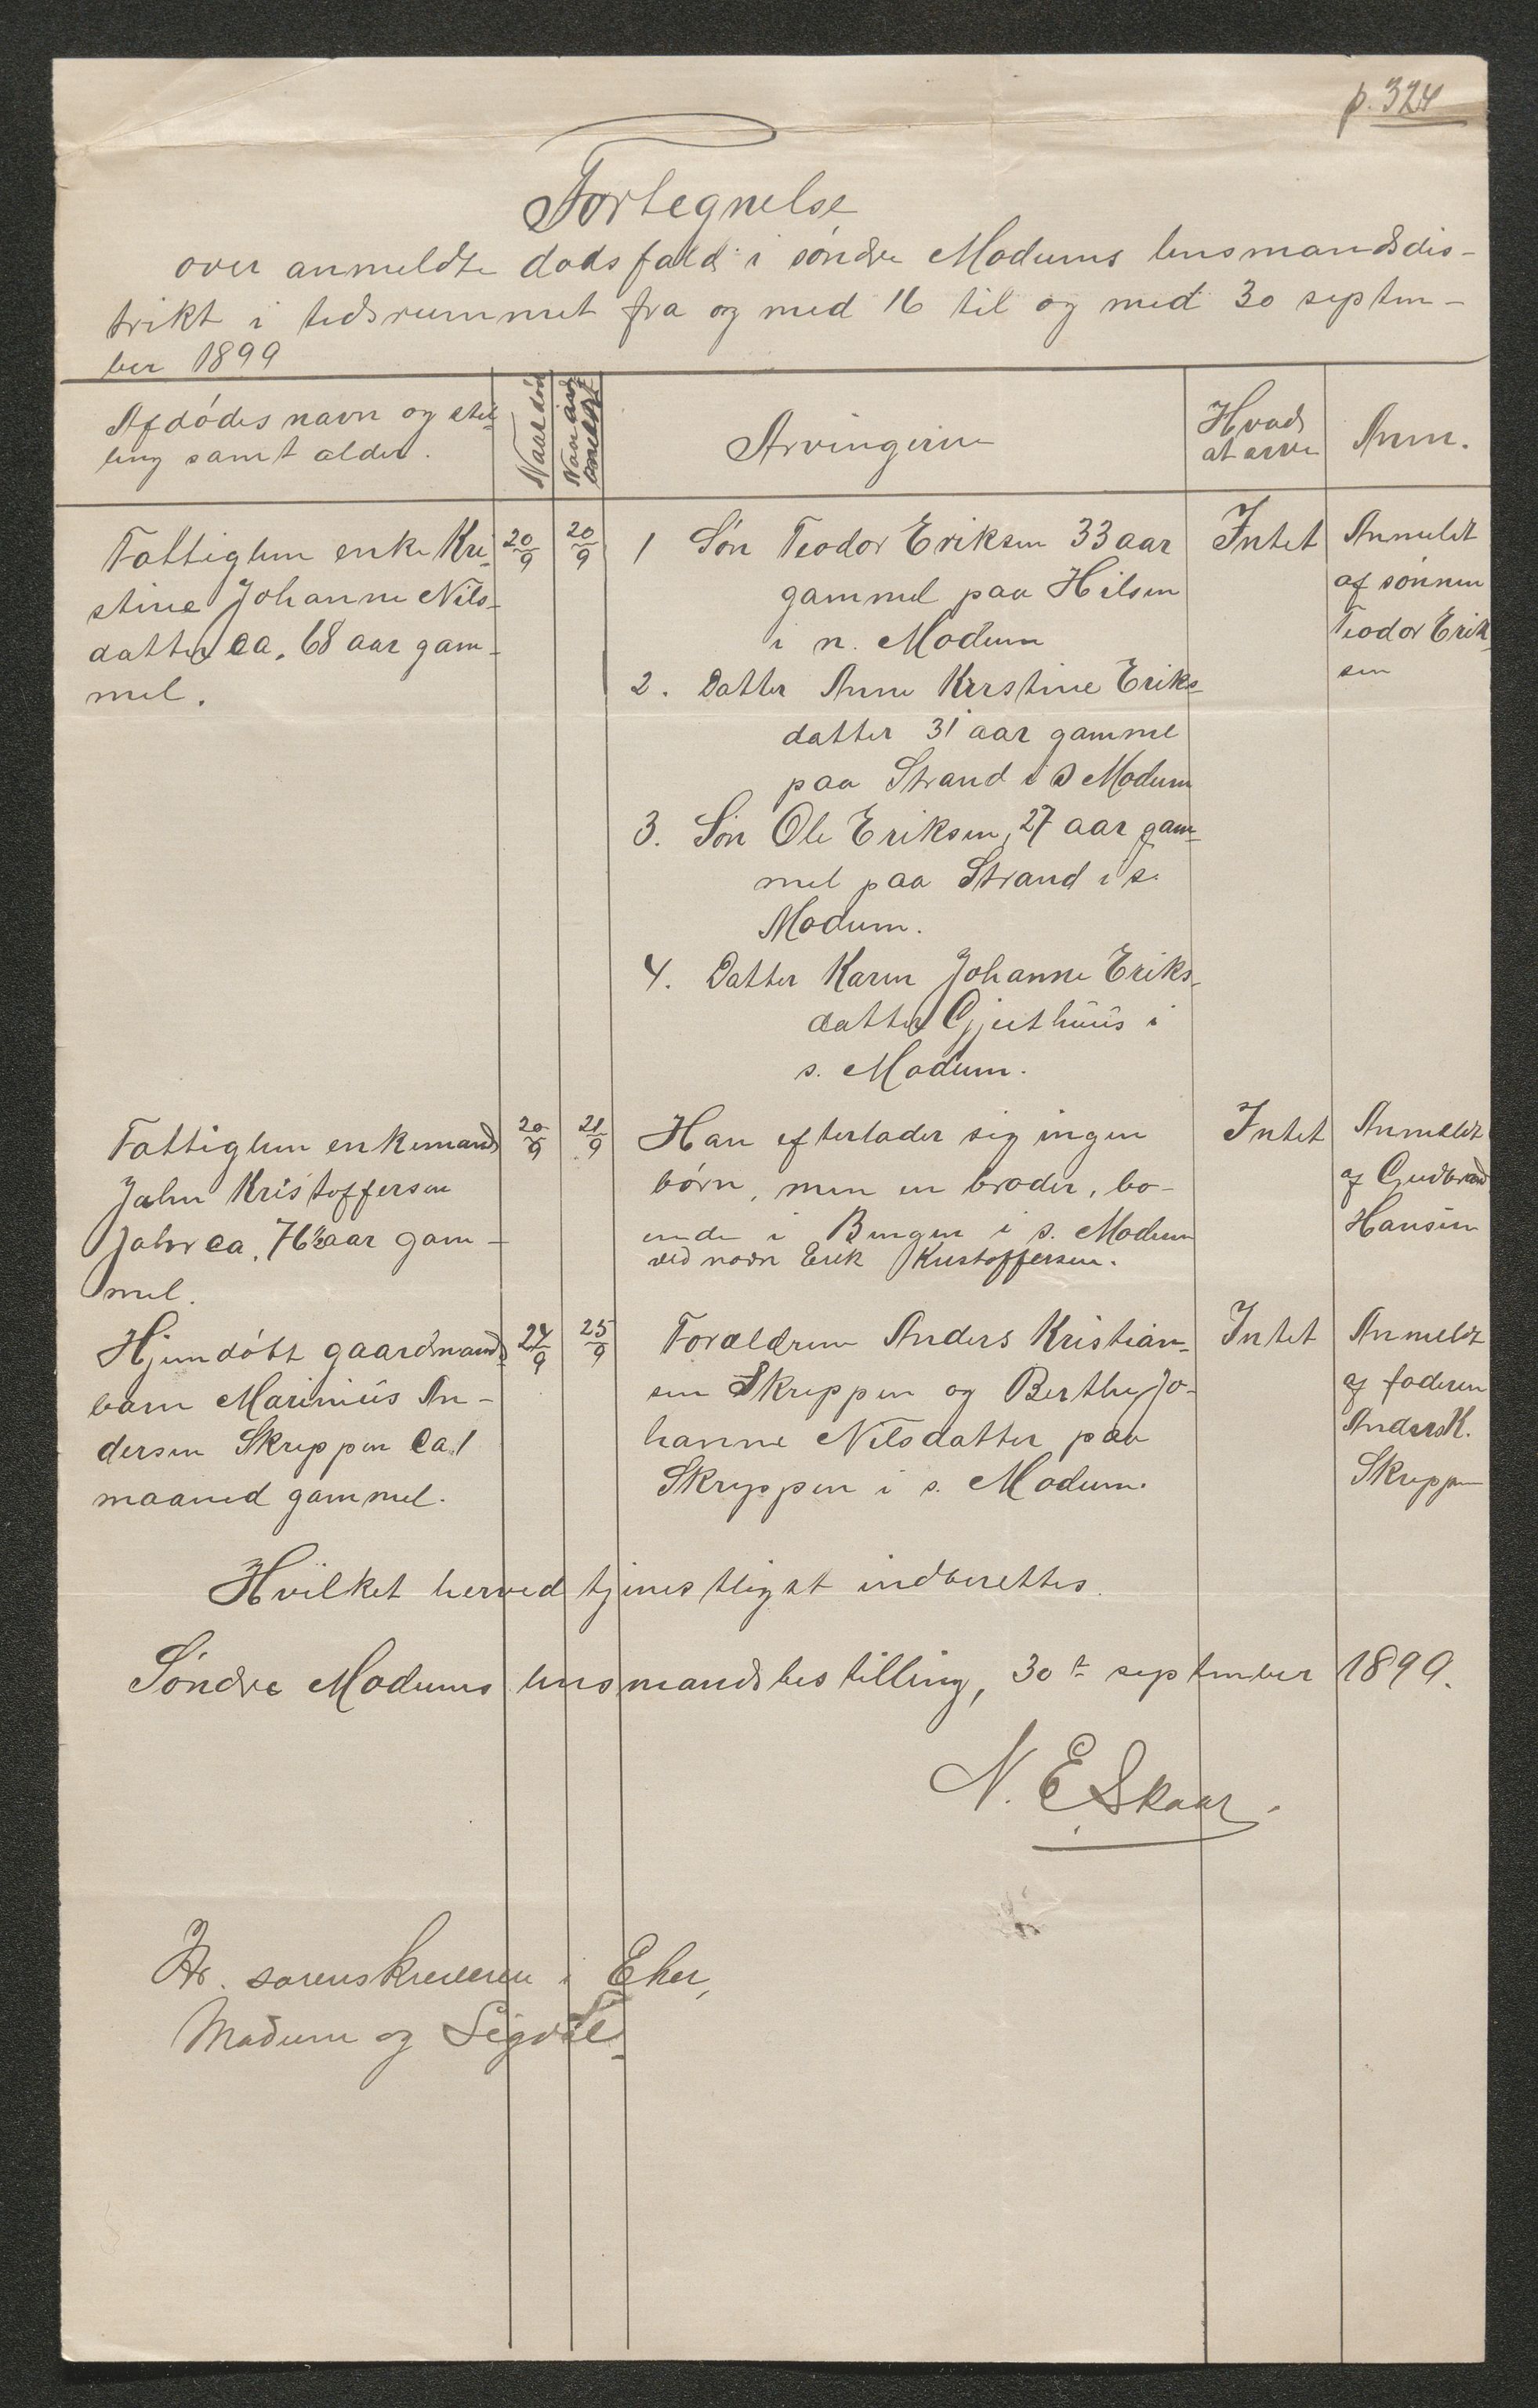 p. 324
Fortegnelse
over anmeldte dødsfald i søndre Modums lensmandsdis-
trikt i tidsrummet fra og med 16 til og med 30 septem-
ber 1899
Afdødes navn og stil-
ling samt alder.
Naar død
Naar an-
meldt
Arvingerne
Hvad
at arve
Anm.
Fattiglem enke Kri-
stine Johanne Nils-
datter ca. 68 aar gam-
mel.
20/9
20/9
1 Søn Teodor Eriksen 33 aar
gammel paa Hilsen
i n. Modum
2. Datter Anne Kirstine Eriks-
datter 31 aar gammel
paa Strand i S Modum
3. Søn Ole Eriksen, 27 aar gam-
mel paa Strand i s.
Modum.
4. Datter Karen Johanne Eriks-
datter Gjethuus i
s. Modum.
Intet
Anmeldt
af sønnen
Teodor Erik-
sen
Fattiglem enkemand
John Kristoffersen
ca. 76 aar gam-
mel.
20/9
21/9
Han efterlader sig ingen
børn, men en broder, bo-
ende i Bingen i s. Modum
ved navn Erik Kristoffersen.
Intet
Anmeldt
af Gudbrand
Hansen
Hjemdøbt gaardmands-
barn Marinius An-
dersen Skreppen ca 1
maaned gammel.
24/9
25/9
Forældrene Anders Kristian-
sen Skreppen og Berthe Jo-
hanne Nilsdatter paa
Skryppen i s. Modum.
Intet
Anmeldt
af faderen
Anders K.
Skreppen
Hvilket herved tjenstligst indberettes.
Søndre Modums lensmandsbestilling, 30te september 1899.
N. E Skaar.
Hr. sorenskriveren i Eker,
Modum og Sigdal